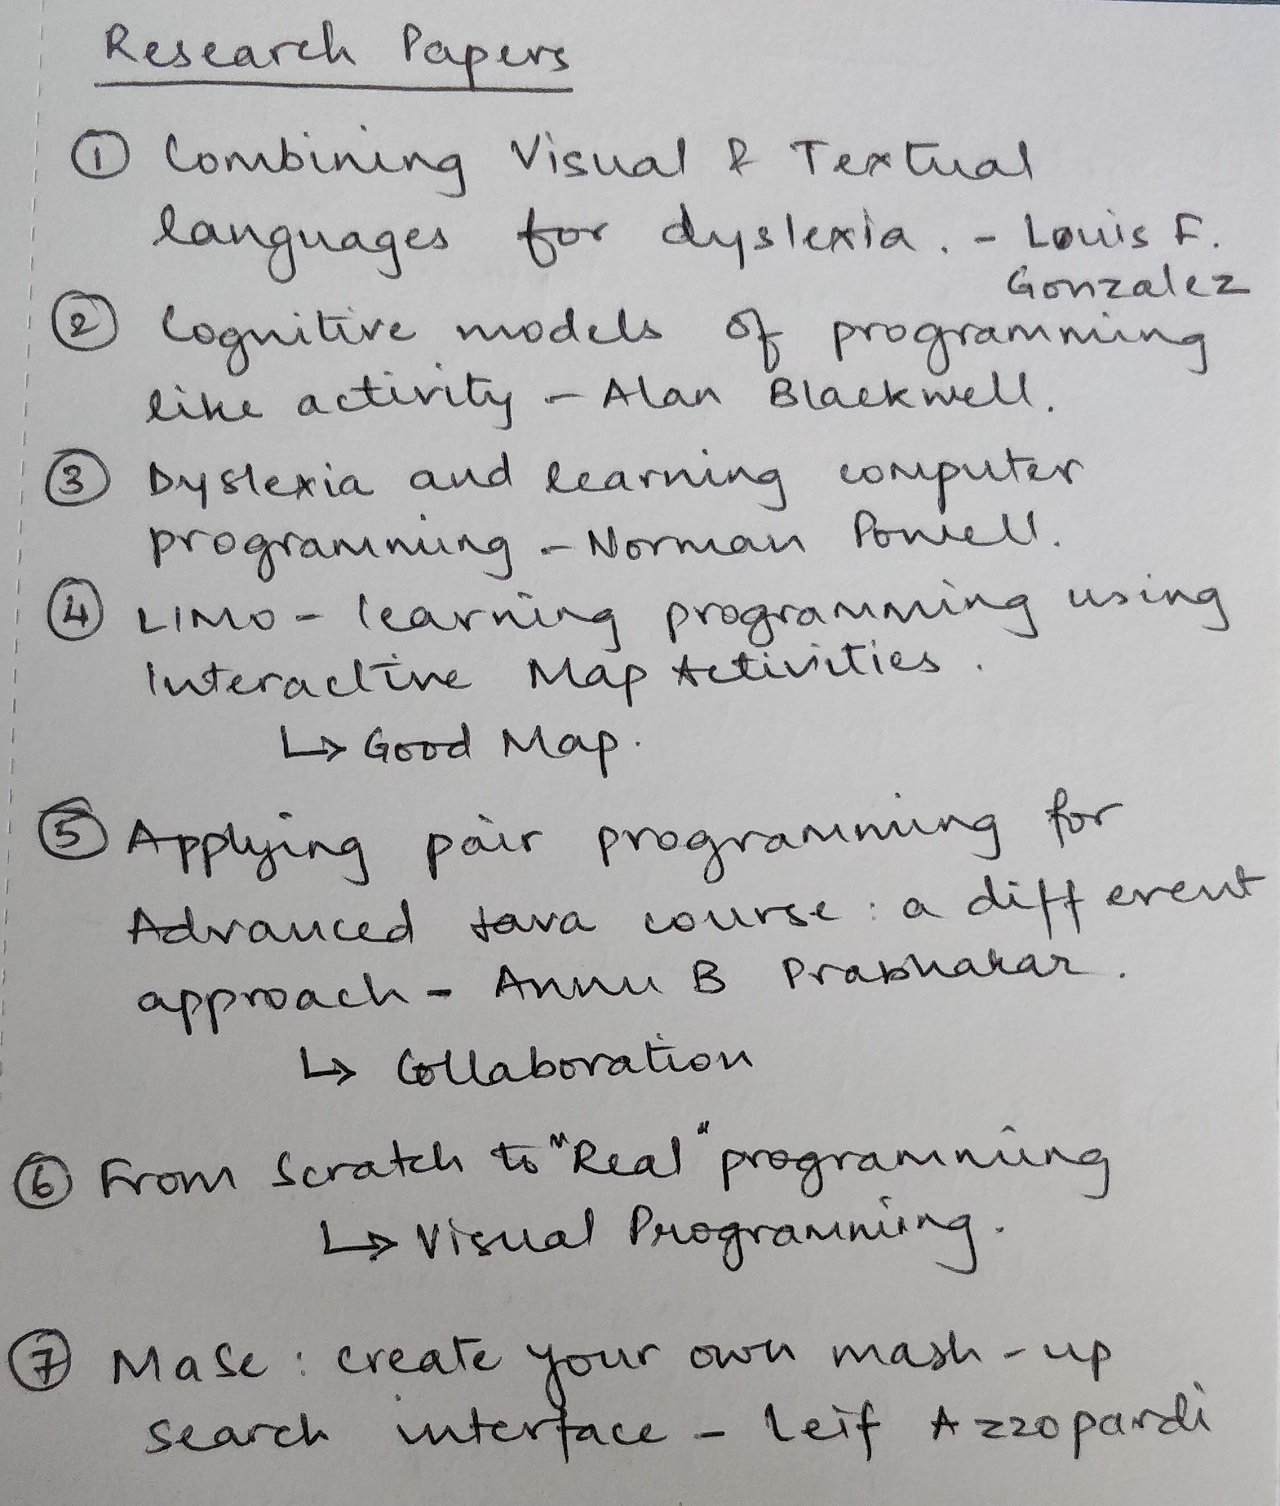 Research Papers
① Combining Visual & Textual
languages for dyslexia. - Louis F.
Gonzalez
② Cognitive models of programming
like activity - Alan Blackwell.
③ Dyslexia and learning computer
programming - Norman Powell.
④ LIMO - learning programming using
Interactive Map Activities.
↳ Good Map.
⑤ Applying pair programming for
Advanced Java course : a different
approach - Annu B Prabhakar.
↳ Collaboration
⑥ From Scratch to "Real" programming
↳ Visual Programming.
⑦ MaSe : create your own mash-up
search interface - Leif Azzopardi